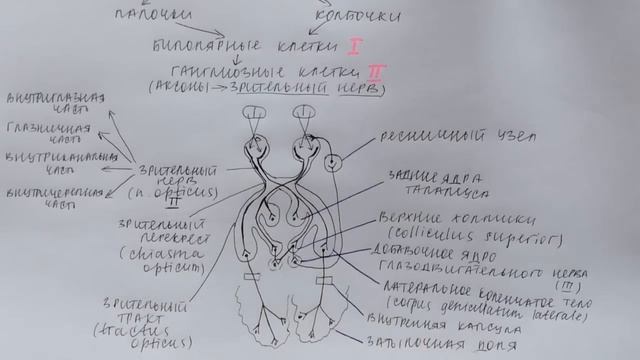 ПАЛОЧКИ
КОЛБОЧКИ
БИПОЛЯРНЫЕ КЛЕТКИ I
ГАНГЛИОЗНЫЕ КЛЕТКИ II
(АКСОНЫ → ЗРИТЕЛЬНЫЙ НЕРВ)
ВНУТРИГЛАЗНАЯ
ЧАСТЬ
ГЛАЗНИЧНАЯ
ЧАСТЬ
ВНУТРИКАНАЛЬНАЯ
ЧАСТЬ
ВНУТРИЧЕРЕПНАЯ
ЧАСТЬ
ЗРИТЕЛЬНЫЙ
НЕРВ
(n. opticus)
II
ЗРИТЕЛЬНЫЙ
ПЕРЕКРЕСТ
(chiasma
opticum)
ЗРИТЕЛЬНЫЙ
ТРАКТ
(tractus
opticus)
РЕСНИЧНЫЙ УЗЕЛ
ЗАДНИЕ ЯДРА
ТАЛАМУСА
ВЕРХНИЕ ХОЛМИКИ
(colliculus superior)
ДОБАВОЧНОЕ ЯДРО
ГЛАЗОДВИГАТЕЛЬНОГО НЕРВА
(III)
ЛАТЕРАЛЬНОЕ КОЛЕНЧАТОЕ ТЕЛО
(corpus geniculatum laterale)
ВНУТРЕННЯЯ КАПСУЛА
ЗАТЫЛОЧНАЯ ДОЛЯ